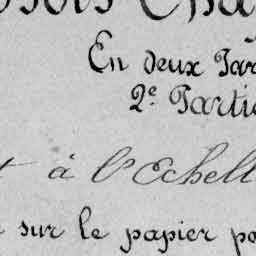 En deux Par
2e Partie
à l'Echell
sur le papier po